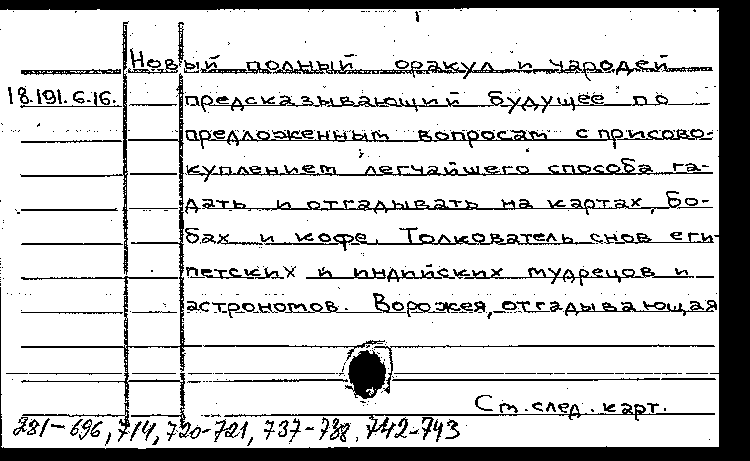 Новый полный оракул и чародей
18.191.6.16. предсказывающий будущее по
предложенным вопросам с присово-
куплением легчайшего способа га-
дать и отгадывать на картах, бо-
бах и кофе. Толкователь снов еги-
петских и индийских мудрецов и
астрономов. Ворожея, отгадывающая
См. след. карт.
281-696, 714, 720-721, 737-738, 742-743